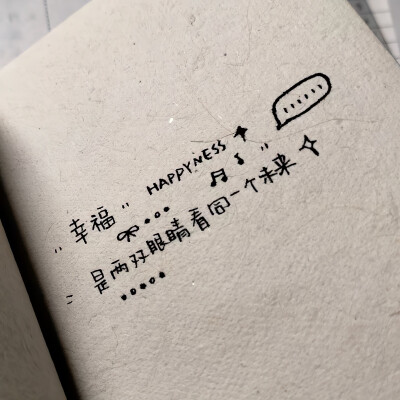 "幸福" HAPPYNESS
是两双眼睛看同一个未来"